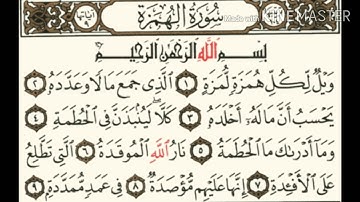 سُورَةُ الْهُمَزَةِ
Made with KINEMASTER
بِسْمِ اللَّهِ الرَّحْمَٰنِ الرَّحِيمِ
وَيْلٌ لِّكُلِّ هُمَزَةٍ لُّمَزَةٍ ١ الَّذِي جَمَعَ مَالًا وَعَدَّدَهُ ٢
يَحْسَبُ أَنَّ مَالَهُ أَخْلَدَهُ ٣ كَلَّا لَيُنبَذَنَّ فِي الْحُطَمَةِ ٤
وَمَا أَدْرَاكَ مَا الْحُطَمَةُ ٥ نَارُ اللَّهِ الْمُوقَدَةُ ٦ الَّتِي تَطَّلِعُ
عَلَى الْأَفْئِدَةِ ٧ إِنَّهَا عَلَيْهِم مُّؤْصَدَةٌ ٨ فِي عَمَدٍ مُّمَدَّدَةٍ ٩